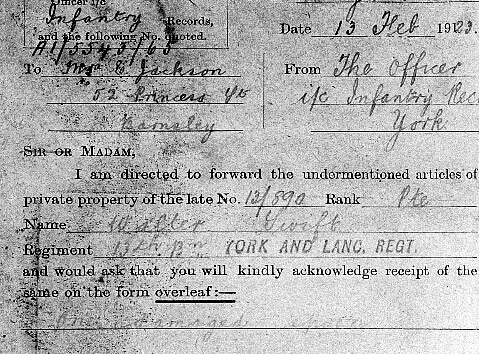 Officer i/c
Infantry Records,
and the following No. quoted.
A1/5543/65
Date 13 Feb 19123.
To Mrs E Jackson
52 Princess St
Barnsley
From The Officer
i/c Infantry Rec
York
SIR OR MADAM,
I am directed to forward the undermentioned articles of
private property of the late No. 13/590 Rank Pte
Name Walter Swift
Regiment 13th Bn YORK AND LANC. REGT.
and would ask that you will kindly acknowledge receipt of the
same on the form overleaf:—